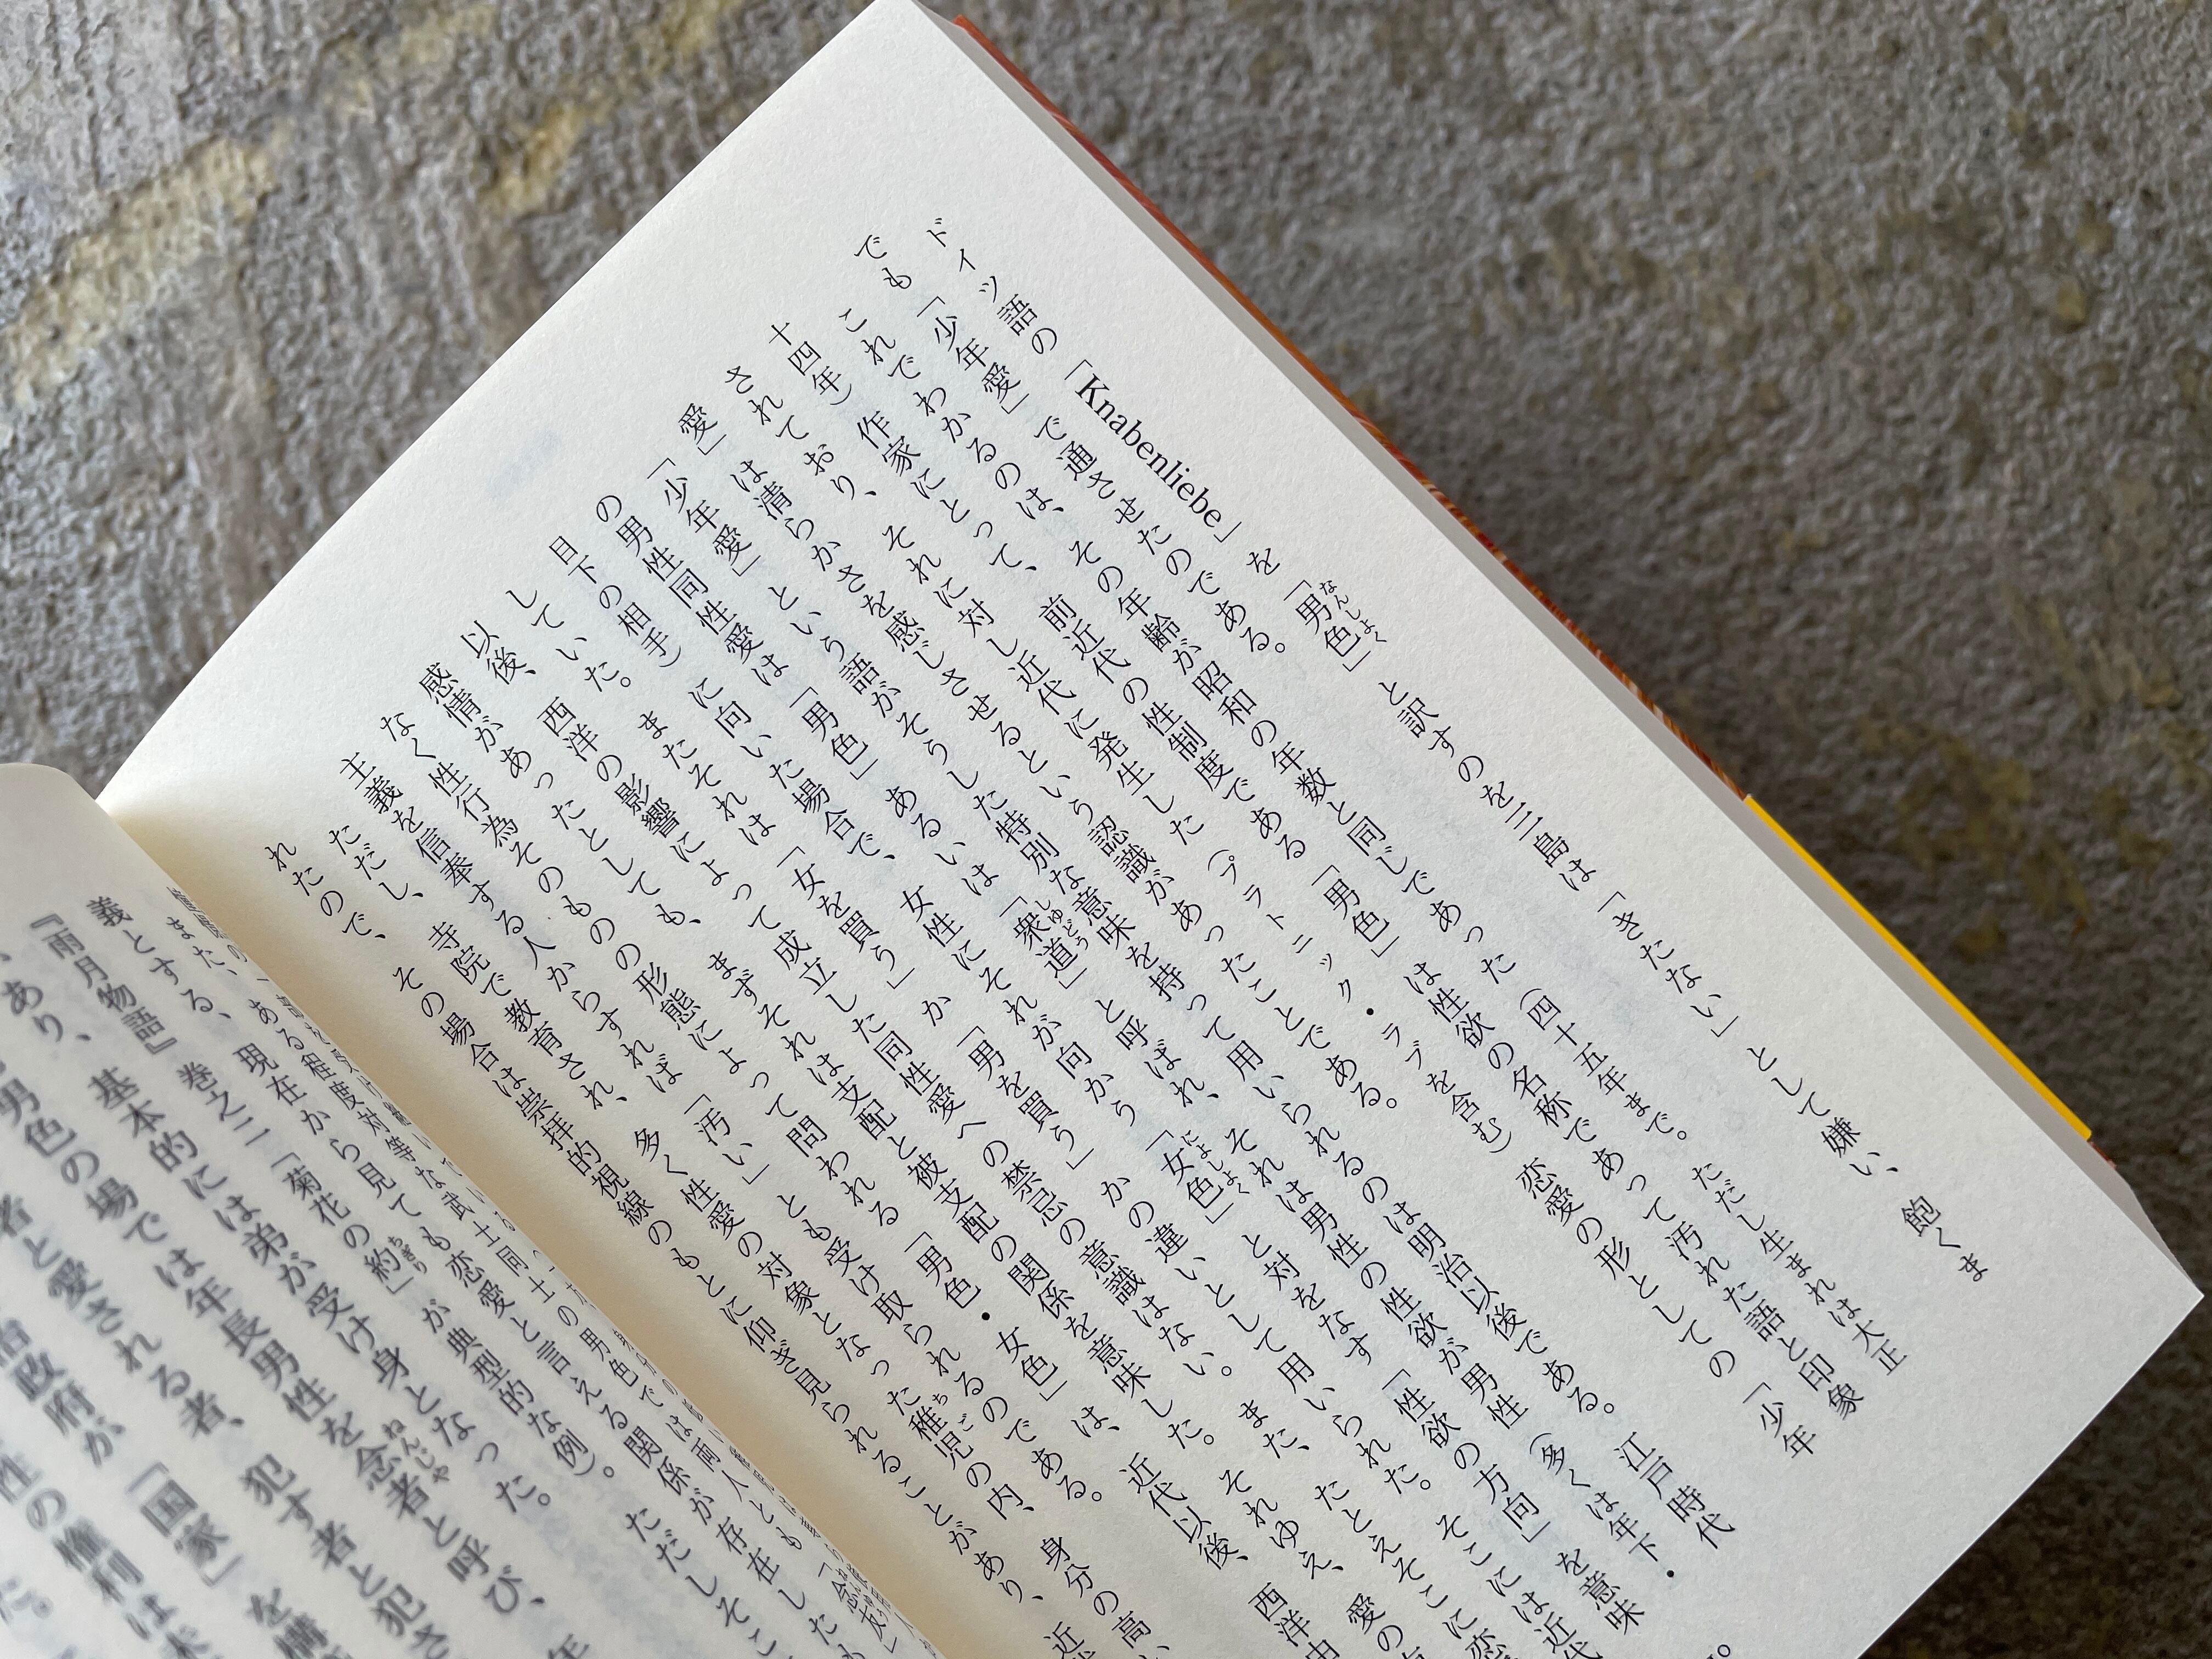 ドイツ語の「Knabenliebe」を「男色」と訳すのを三島は「きたない」として嫌い、飽くま
でも「少年愛」で通させたのである。
これでわかるのは、その年齢が昭和の年数と同じであった(四十五年まで。ただし生まれは大正
十四年)作家にとって、前近代の性制度である「男色」は性欲の名称であって汚れた語と印象
されており、それに対し近代に発生した(プラトニック・ラブを含む)恋愛の形としての「少年
愛」は清らかさを感じさせるという認識があったことである。
「少年愛」という語がそうした特別な意味を持って用いられるのは明治以後である。江戸時代
の男性同性愛は「男色」、あるいは「衆道」と呼ばれ、それは男性の性欲が男性(多くは年下・
目下の相手)に向いた場合で、女性にそれが向かう「女色」と対をなす「性欲の方向」を意味
していた。またそれは「女を買う」か「男を買う」かの違いとして用いられた。そこには近代
以後、西洋の影響によって成立した同性愛への禁忌の意識はない。また、たとえそこに恋
感情があったとしても、まずそれは支配と被支配の関係を意味した。それゆえ、愛の
なく性行為そのものの形態によって問われる「男色・女色」は、近代以後、西洋由
主義を信奉する人からすれば「汚い」とも受け取られるのである。
ただし、寺院で教育され、多く性愛の対象となった稚児の内、身分の高
れたので、その場合は崇拝的視線のもとに仰ぎ見られることがあり、近
また、ある程度対等な武士同士の男色では両人とも「念友」
義とする、現在から見ても恋愛と言える関係が存在したも
『雨月物語』巻之二「菊花の約」が典型的な例)。ただしそこ
あり、基本的には弟が受け身となった。
男色の場では年長男性を念者と呼び、年
者と愛される者、犯す者と犯さ
治政府が「国家」を構
性の権利は
た。